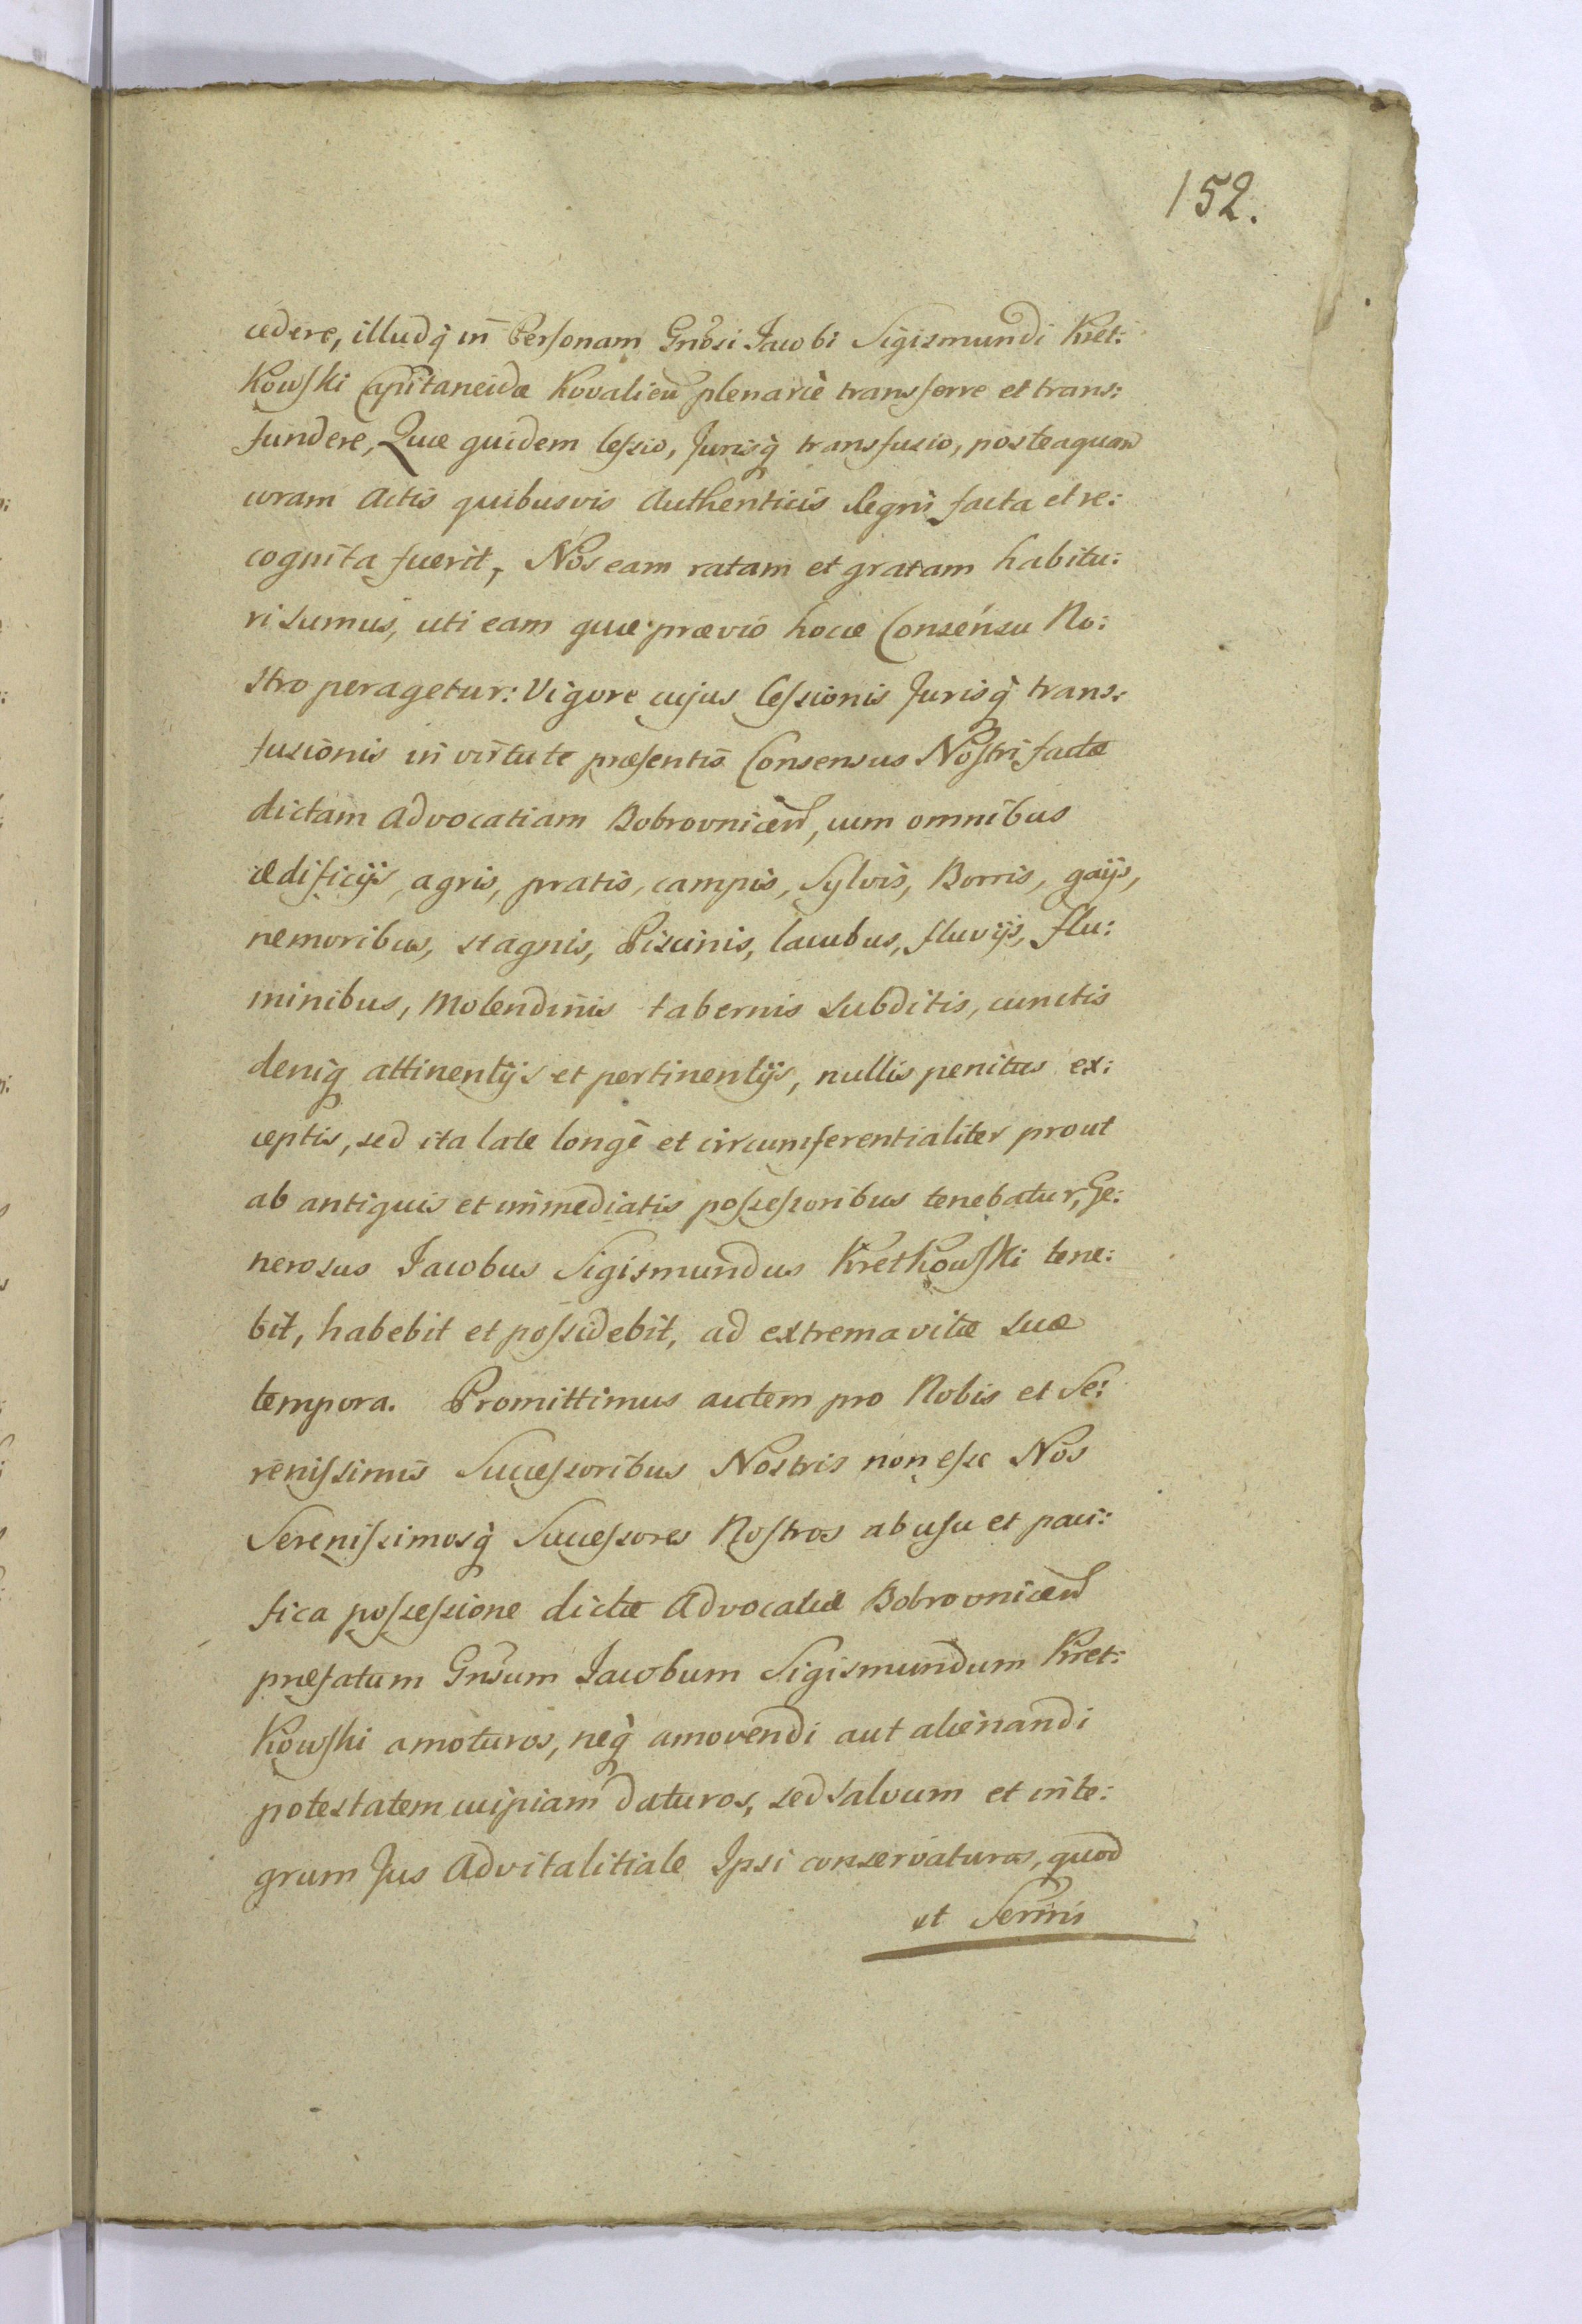 152.
cedere, illudq̀ in Personam Gnosi Jacobi Sigismundi Kret:
Kowski Capitaneidæ Kovalien plenariè transferre et trans:
fundere, Quæ quidem Cessio, Jurisq̀ transfusio, posteaquam
coram Actis quibusvis Authenticis Regni facta et re:
cognita fuerit, Nos eam ratam et gratam habitu:
ri sumus, uti eam quæ prævio hocce Consensu No:
stro peragetur: Vigore cujus Cessionis Jurisq̀ trans:
fusionis in virtute præsentis Consensus Nostri factæ
dictam Advocatiam Bobrovnicen, cum omnibus
ædificijs, agris, pratis, campis, Sylvis, Borris, gaijs,
nemoribus, stagnis, Piscinis, lacubus, fluvijs, flu:
minibus, Molendinis tabernis subditis, cunctis
deniq̀ attinentijs et pertinentijs, nullis penitus ex:
ceptis, sed ita late longè et circumferentialiter prout
ab antiquis et immediatis possessoribus tenebatur, Ge:
nerosus Jacobus Sigismundus Kretkowski tene:
bit, habebit et possidebit, ad extrema vitæ suæ
tempora. Promittimus autem pro Nobis et Se:
renissimis Successoribus Nostris non esse Nos
Serenissimosq̀ Successores Nostros ab usu et paci:
fica possessione dictæ Advocatiæ Bobrovnicen
præfatum Gnsum Jacobum Sigismundum Kret:
Kowski amoturos, neq̀ amovendi aut alienandi
potestatem cuipiam daturos, sed salvum et inte:
grum Jus Advitalitiale Ipsi conservaturos, quod
et Sermis